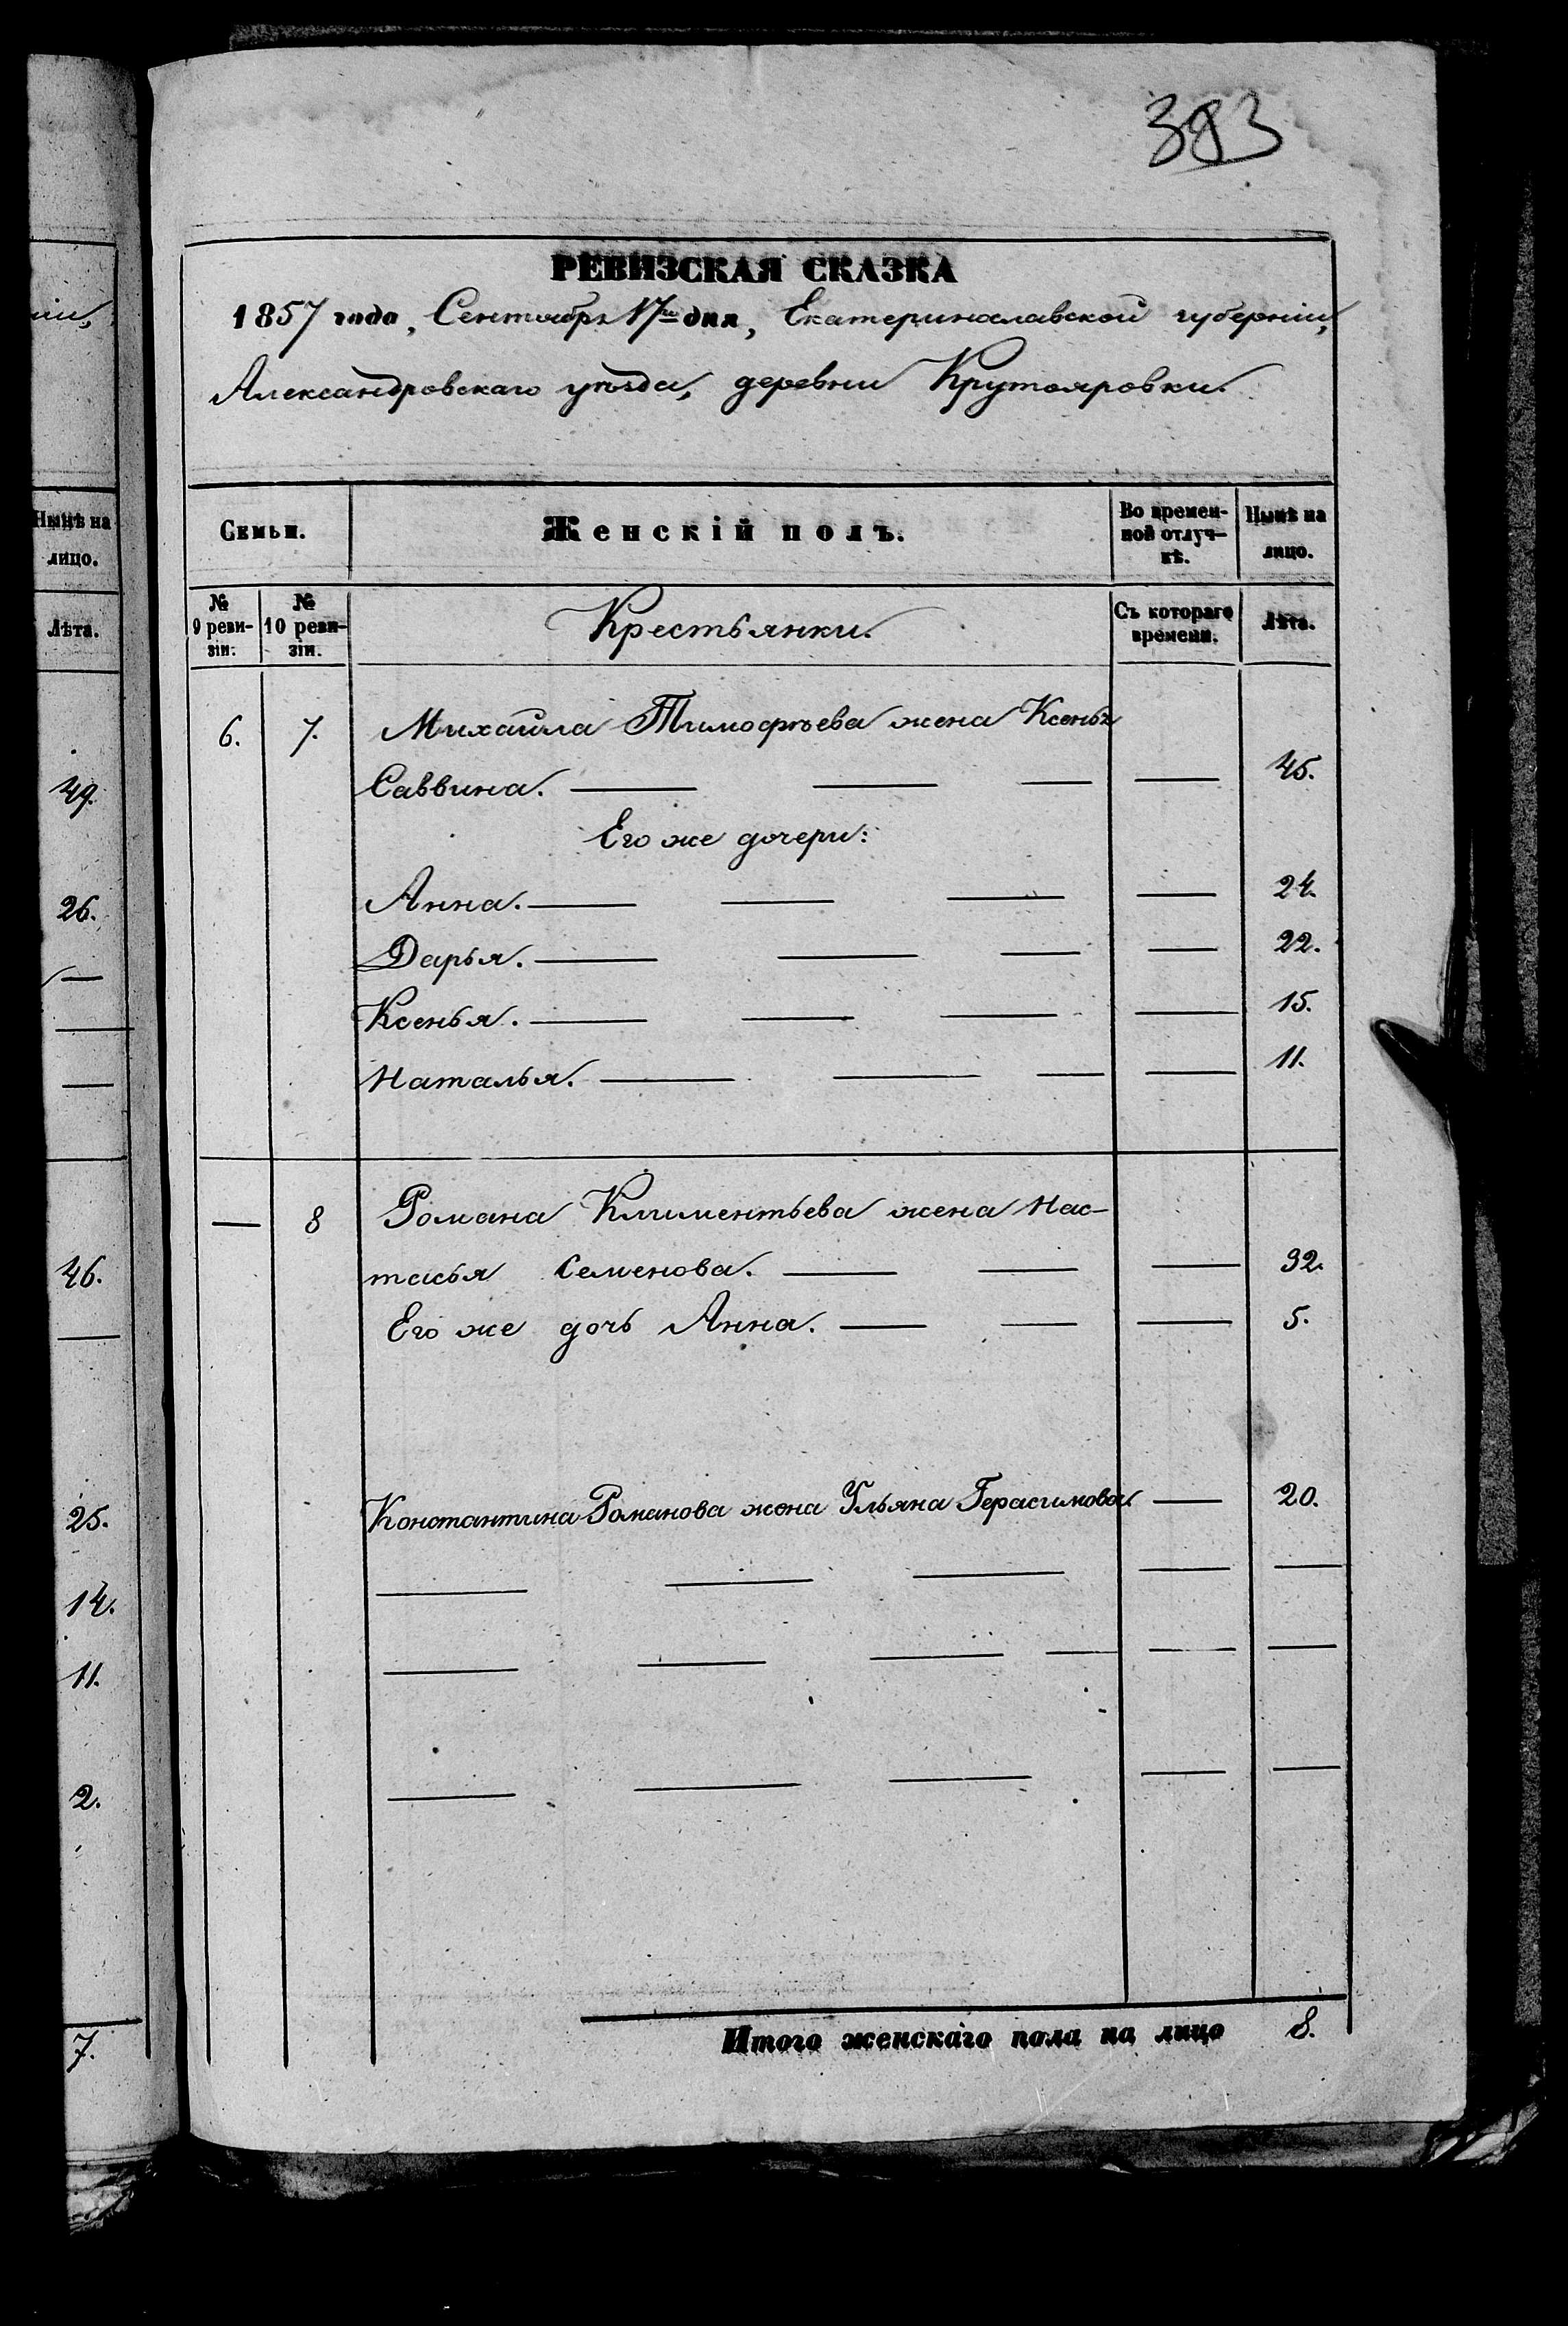 383
нiи,
РЕВИЗСКАЯ СКАЗКА
1857 года, Сентября 17го дня, Екатеринославской губернiи,
Александровскаго уѣзда, деревни Крутояровки.
Нынѣ на
лицо.
Лѣта.
49.
26.
46.
25.
14.
11.
2.
7.
Семьи.
Женскій полъ.
Во времен-
ной отлуч-
кѣ.
Нынѣ на
лицо.
№
9 реви-
зіи.
№
10 реви-
зіи.
Крестьянки.
Съ котораго
времени.
Лѣта.
6. 7. Михайла Тимофѣева жена Ксенья
Саввина. — — — — 45.
Его же дочери:
Анна. — — — — 24.
Дарья. — — — — 22.
Ксенья. — — — — 15.
Наталья. — — — — 11.
— 8 Романа Климентьева жена Нас-
тасья Семенова. — — — 32.
Его же дочь Анна. — — — 5.
Константина Романова жена Ульяна Герасимова. — 20.
Итого женскаго пола на лицо 8.